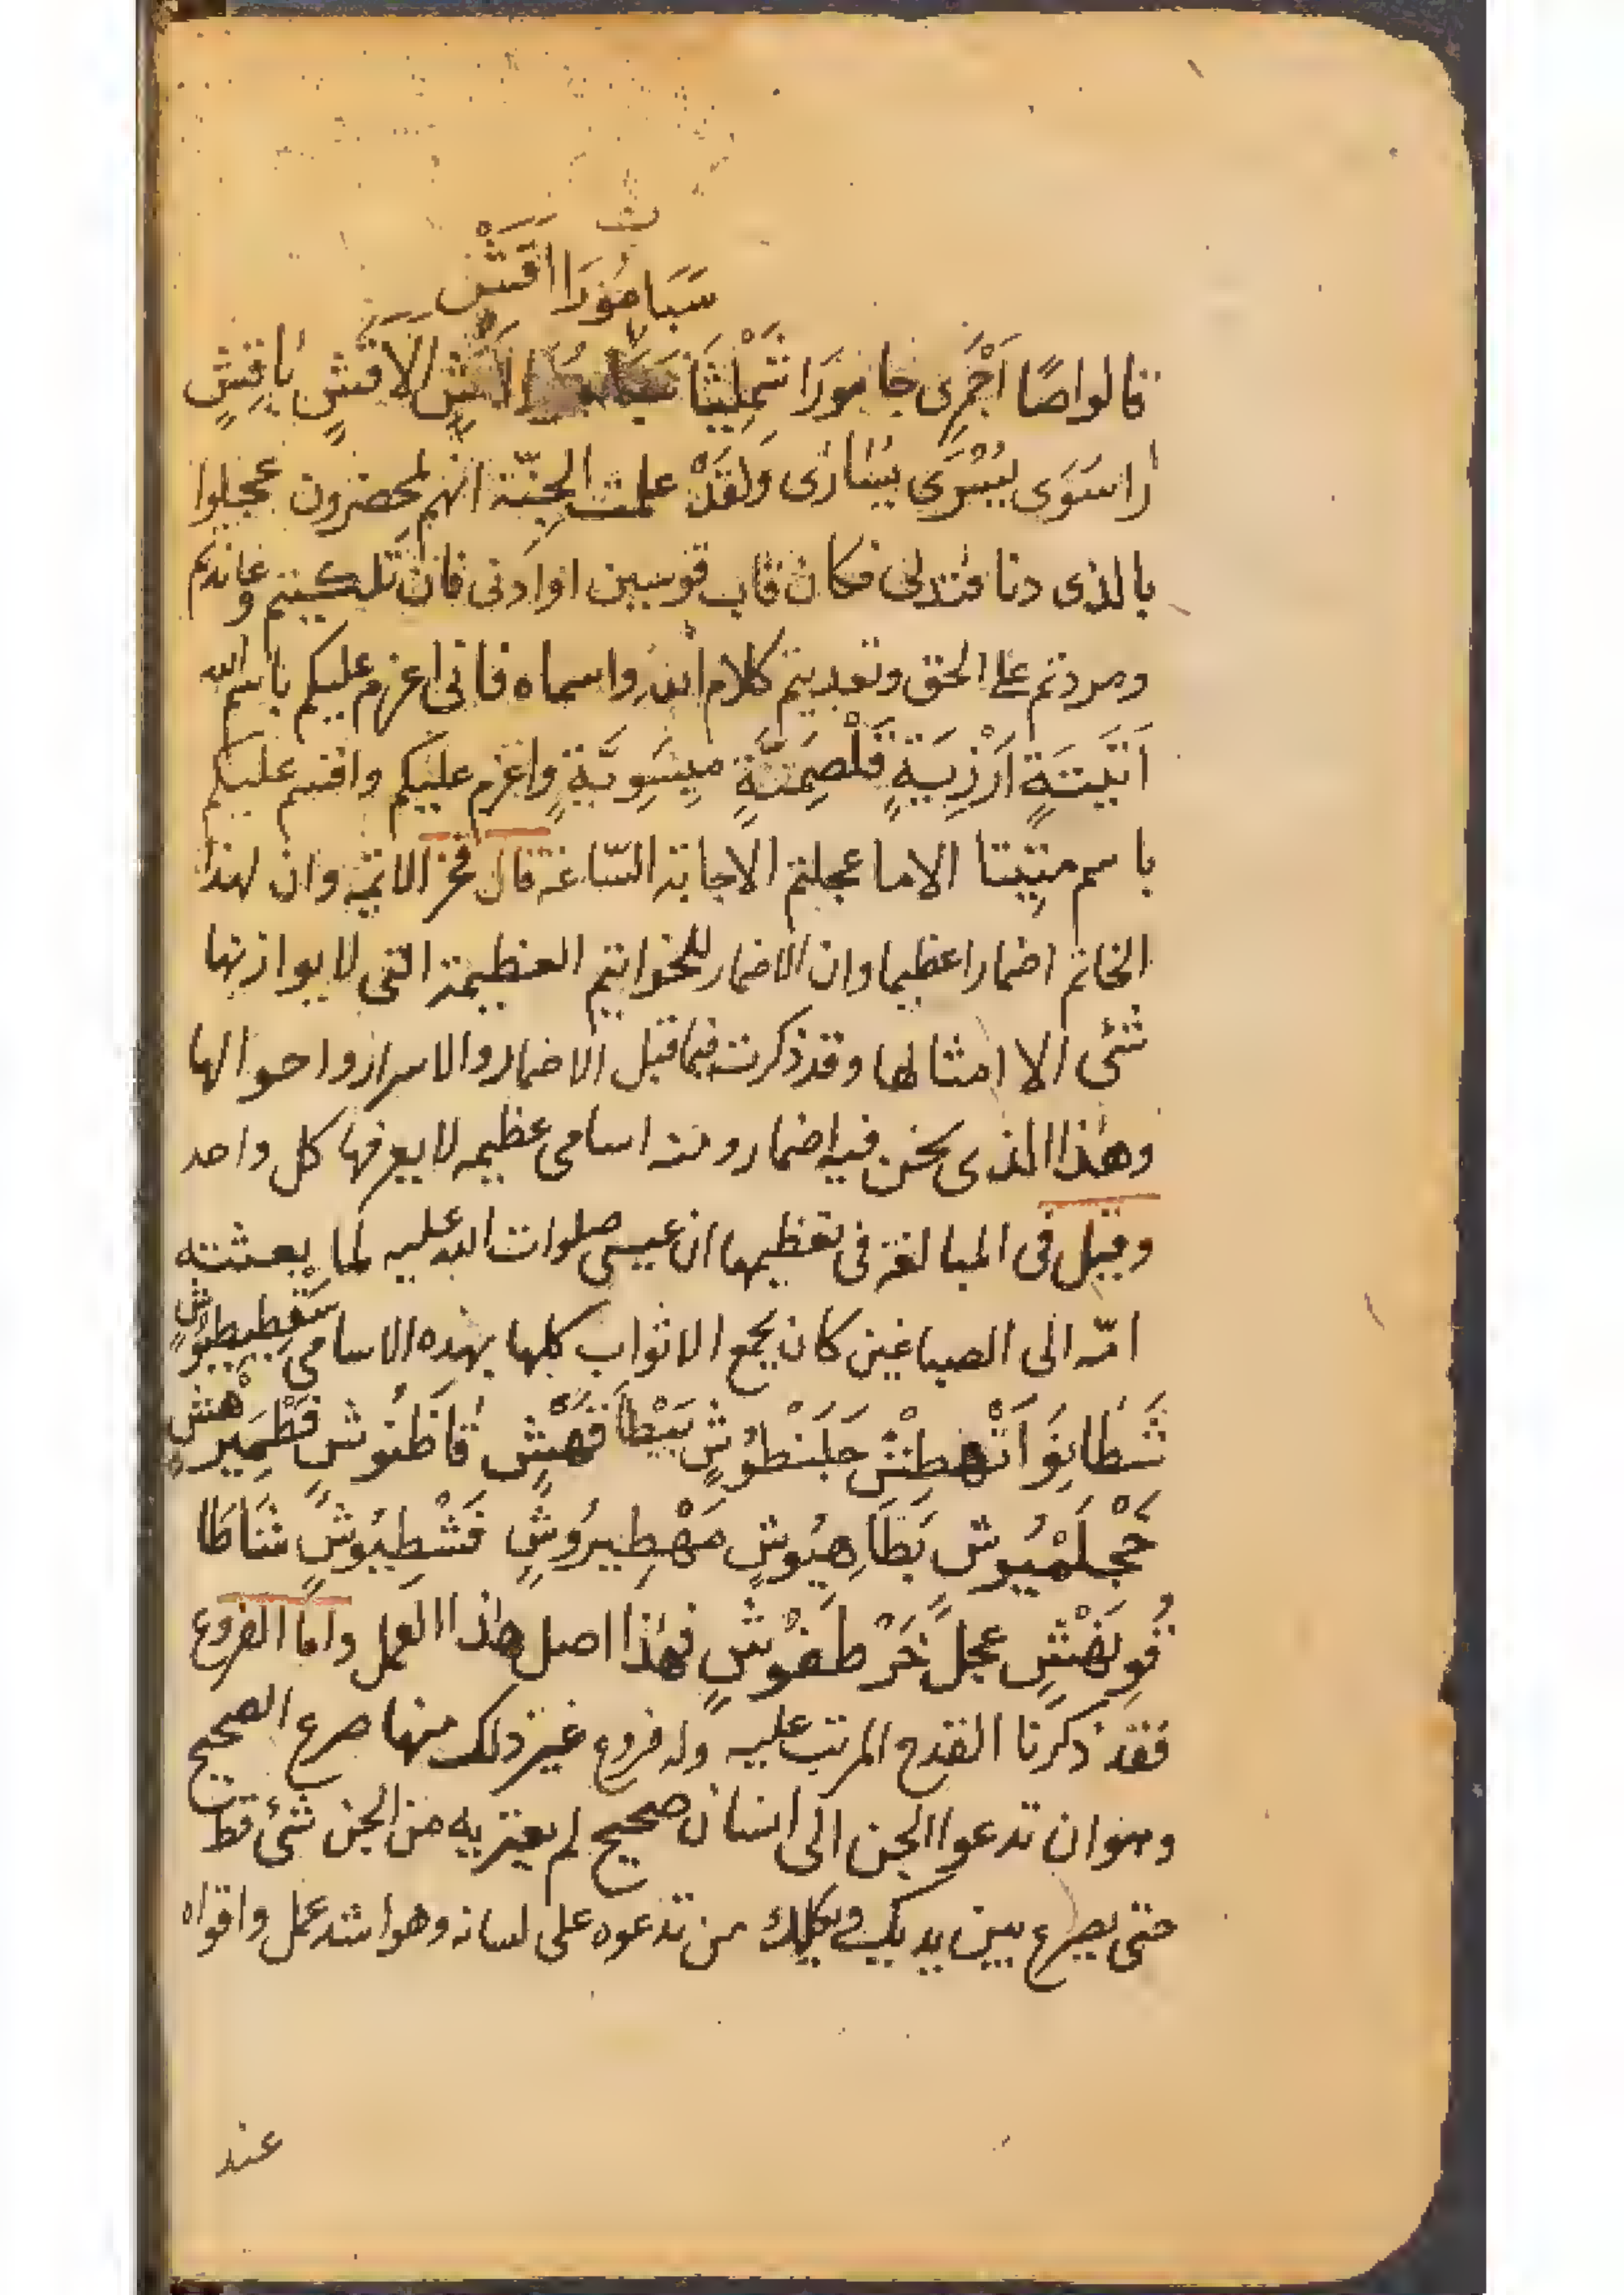 سَبَا مُورَا اقَشْ
قالوا صًا اَجْرَى جا نورَا شَمْلِيثَا الاقشٍ يُاقِشٍ
رُاسَوَى يُسْرَى يسَارَى وَلقَدْ علمت الجِنّة انهم لمحضرون عجلوا
بالذى دنا فتدلى فكان قاب قوسين او ادنى فان تلكيتم وعاندتم
ومردتم على الحق وتعديتم كلام الله واسماه فانى اعزم عليكم باسم الله
اَتَيَتَةٍ اَرْزِبَيةٍ قَلْصِمَتيَّةٍ مِيسَوِيَّةٍ واعزم عليكم واقسم عليكم
باسم متِيتا الا ما عجلتم الاجابة السّاعة قال فخر الائمة وان لهذا
الخاتم اضمارا عظيما وان الاضمار للخواتيم العظيمة التى لا يوازنها
شئ الا امثالها وقد ذكرت فيما قبل الاضمار والاسرار واحوالها
وهذا الذى نحن فيه اضماروته اسامى عظيمه لا يعرفها كل واحد
وقيل فى المبالغة فى تعظيمها ان عيسى صلوات الله عليه لما بعثته
امّه الى الصباغين كان يجمع الاثواب كلها بهذه الاسامى سَقطِيطَبُوشٍ
شَطَابِغَوَ اَنْهَطِشْ جَلَنْطَوُشٍ بَيْطَا فَهَشٍ قَاطَنُوشٍ قَطْمِيرٍ هَشٍ
حَجْلَمْيُوش بَطَاهِيُوشٍ مَهْطِيرُوشٍ فَشْطِيُوشٍ شَاطَا
فُوِنَهْشٍ عجلً خَرْ طَفوْشٍ فهذا اصل هذا العمل واما الفروع
فقد ذكرنا القدح المرتب عليه وله فروع غير ذلك منها صرع الصحيح
وهو ان تدعوا الجن الى انسان صحيح لم يعتريه من الجن شئ قط
حتى يصرع بين يديك ويكلمك من تدعوه على لسانه وهو اشد عمل واقواه
عند